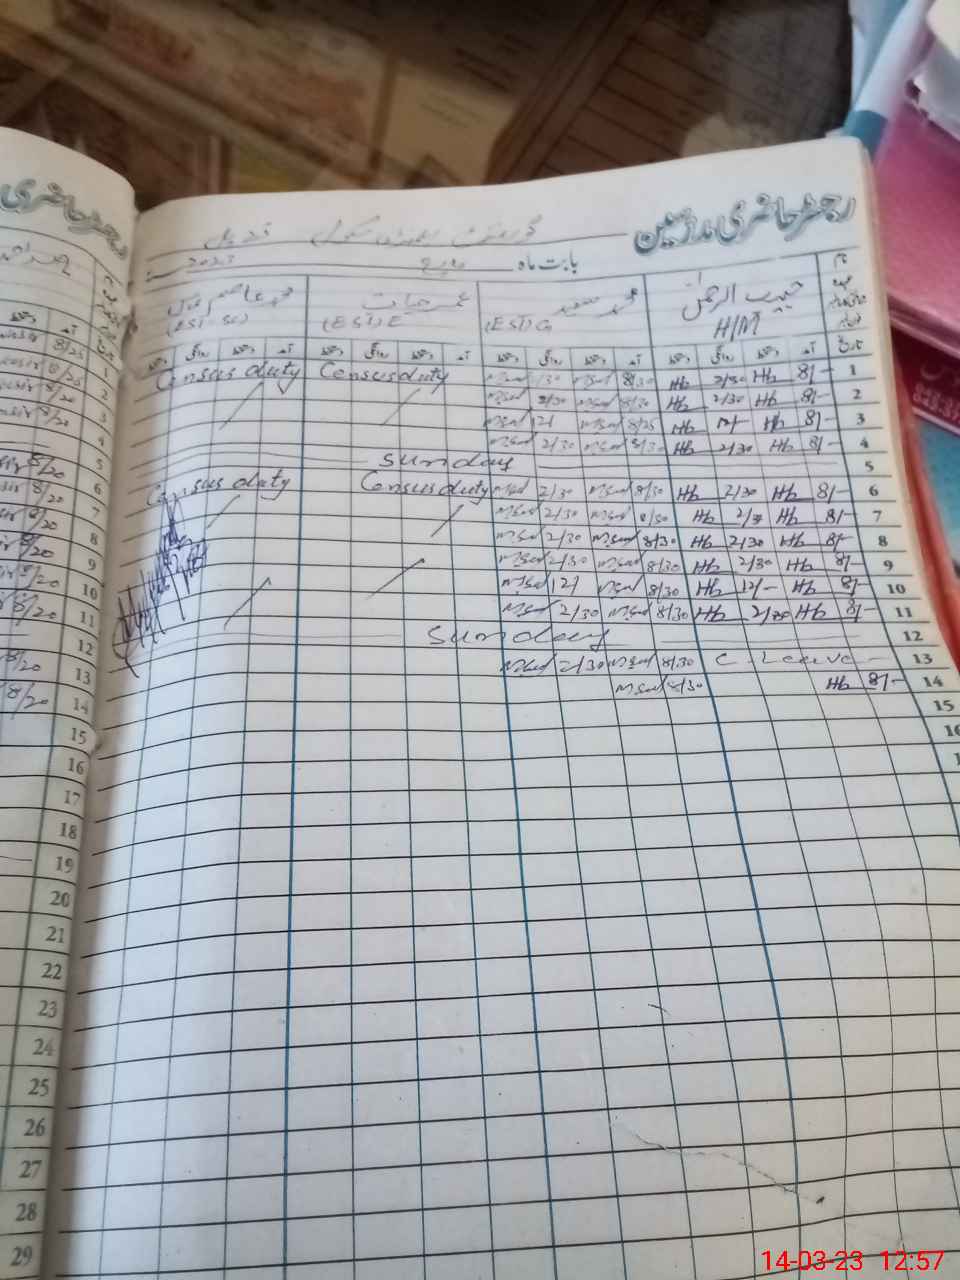 رجسٹر حاضری مدرسین
رجسٹر حاضری
بابت ماہ مارچ 2023
حبیب الرحمٰن محمد سعید عمر حیات محمد عاصم
H/M (EST)G (EST)E (EST-SC)
تاریخ آمد دستخط روانگی دستخط آمد دستخط روانگی دستخط آمد دستخط روانگی دستخط آمد دستخط روانگی دستخط
Census duty Census duty Msad 1/30 Msad 8/30 Hb 2/30 Hb 8/- 1
Msad 2/30 Msad 8/30 Hb 2/30 Hb 8/- 2
Msad 12/ Msad 8/25 Hb 12/- Hb 8/- 3
Msad 2/30 Msad 8/30 Hb 2/30 Hb 8/- 4
Sunday 5
Census duty Census duty Msad 2/30 Msad 8/30 Hb 2/30 Hb 8/- 6
Msad 2/30 Msad 8/30 Hb 2/30 Hb 8/- 7
Msad 2/30 Msad 8/30 Hb 2/30 Hb 8/- 8
Msad 2/30 Msad 8/30 Hb 2/30 Hb 8/- 9
Msad 12/ Msad 8/30 Hb 12/- Hb 8/- 10
Msad 2/30 Msad 8/30 Hb 2/30 Hb 8/- 11
Sunday 12
Msad 2/30 Msad 8/30 C. Leave - 13
Msad 8/30 Hb 8/- 14
15
16
آمد
8/25 1
8/25 2
8/20 3
8/20 4
5
8/20 6
8/20 7
8/20 8
8/20 9
8/20 10
8/20 11
12
8/20 13
8/20 14
15
16
17
18
19
20
21
22
23
24
25
26
27
28
29
14-03-23 12:57